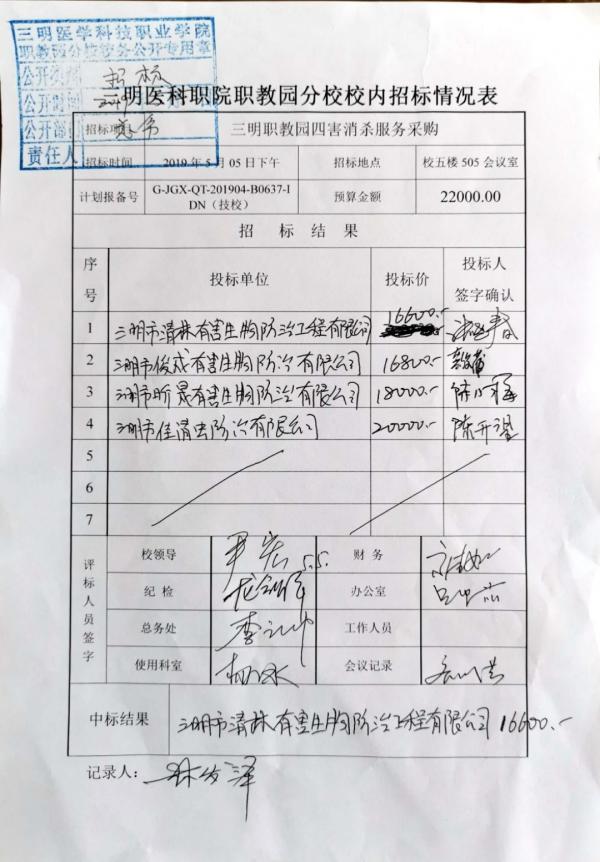 三明医学科技职业学院
职教园分校校务公开专用章
公开类别 招标
公开时间
公开部门 总务
责任人
三明医科职院职教园分校校内招标情况表
招标项目 三明职教园四害消杀服务采购
招标时间 2019年5月05日下午 招标地点 校五楼505会议室
计划报备号 G-JGX-QT-201904-B0637-IDN（技校） 预算金额 22000.00
招 标 结 果
序号 投标单位 投标价 投标人签字确认
1 三明市清林有害生物防治工程有限公司 16600.-
2 三明市俊成有害生物防治有限公司 16800.-
3 三明市昕晟有害生物防治有限公司 18000.-
4 三明市佳清虫防治有限公司 20000.- 陈开望
5
6
7
评标人员签字
校领导 5.5. 财务
纪检 办公室
总务处 工作人员
使用科室 会议记录
中标结果 三明市清林有害生物防治工程有限公司 16600.-
记录人：